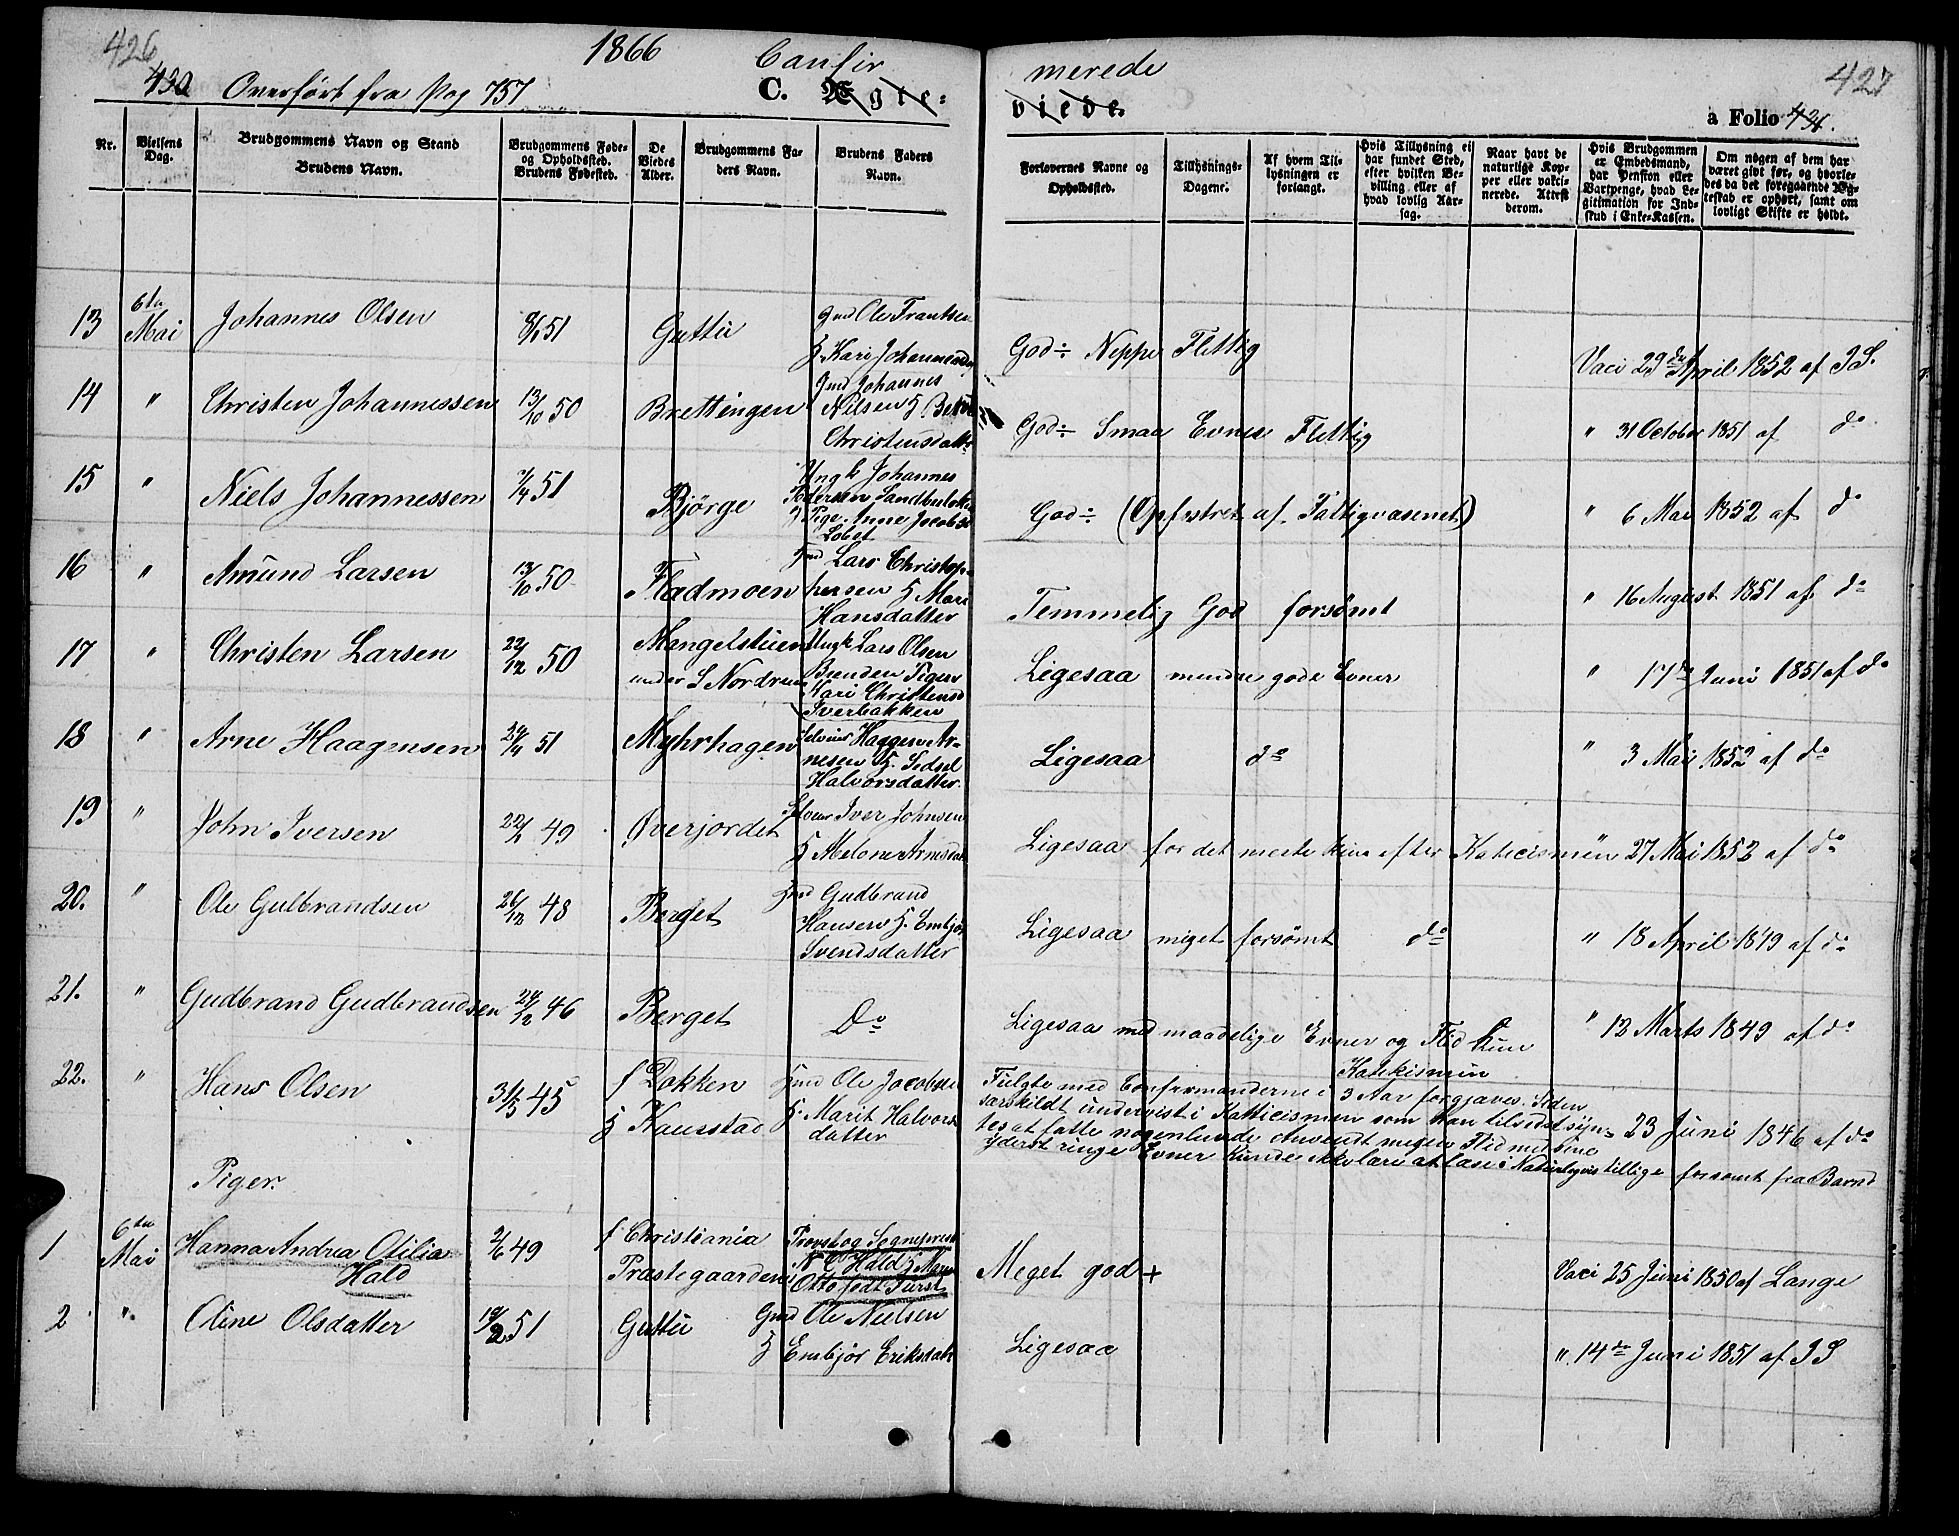 426
430
1866
Confir
merede
427
Overført fra Pag 757
C. Ægte-
viede.
a Folio 431.
Nr.
Vielsens Dag.
Brudgommens Navn og Stand
Brudens Navn.
Brudgommens Føde-
og Opholdssted.
Brudens Fødested.
De
Viedes
Alder.
Brudgommens Fa-
ders Navn.
Brudens Faders
Navn.
Forlovernes Navne og
Opholdssted.
Tillysnings-
Dagene.
Af hvem Til-
lysningen er
forlangt.
Hvis Tillysning ei
har fundet Sted,
efter hvilken Be-
villing eller af
hvad lovlig Aar-
sag.
Naar havt de
naturlige Kop-
per eller vakci-
nerede. Attest
derom.
Hvis Brudgommen
er Embedsmand,
har Pension eller
Vartpenge, hvad Le-
gitimation for Ind-
skud i Enke-Kassen.
Om nogen af dem har
været givt før, og hvorle-
des da det foregaaende Æg-
teskab er ophørt, samt om
lovligt Skifte er holdt.
13 6te Mai Johannes Olsen 8/1 51 Guttu
Gmd Ole Frantsen
H. Kari Johannesda
God ÷ Neppe Flittig
Vaci 29de April 1852 af IS.
14 " Christen Johannessen 13/10 50 Brettingen
Gmd Johannes
Nilsen H.
Christensdatter
God ÷ Smaa Evner Flittig
" 31 October 1851 af do
15 " Niels Johannessen 7/4 51 Bjørge
Ungk Johannes
Pedersen Sandbuløkken
Pige. Anne Jacobsd
Løbet
God ÷ (Opfostret af Fattigvæsenet)
" 6 Mai 1852 af do
16 " Amund Larsen 13/10 50 Fladmoen
Hmd Lars Christop-
hersen H Mari
Hansdatter
Temmelig God forsømt
" 16 August 1851 af do
17 " Christen Larsen 22/12 50 Mangelstuen
under S Nordrum
Ungk Lars Olsen
Bænden Pigen
Kari Christensd
Iverbakken
Ligesaa mindre gode Evner
" 17de Juni 1851 af do
18 " Arne Haagensen 24/4 51 Myhrhagen
Selveier Haagen Ar-
nesen H. Sidsel
Halvorsdatter.
Ligesaa do
" 3 Mai 1852 af do
19 " John Iversen 22/2 49 Øverjordet
Selveier Iver Johnsen
H Abelone Arnesdat
Ligesaa for det meste kun efter Katecismen
" 27 Mai 1852 af do
20. " Ole Gulbrandsen 26/12 48 Berget
Hmd Gudbrand
Hansen H. Embjør
Svendsdatter
Ligesaa meget forsømt do
" 18 April 1849 af do
21. " Gudbrand Gudbrandsen 24/12 46 Berget
Do
Ligesaa med maadelige Evner og Flid kun
Katekismen
" 12 Marts 1849 af do
22. " Hans Olsen 31/5 45 f Dokken
H Kaurstad
Hmd Ole Jacobsen
H. Marit Halvors
datter
Fulgte med Confirmanderne i 3 Aar forgjæves. Siden
særskildt undervist i Katticismen som han tilsidst syn-
tes at fatte nogenlunde. Anvendt megen Flid med sine
yderst ringe Evner Kunde ikke lære at læse. Naturligvis tillige forsømt fra Barnd
23 Juni 1846 af do
Piger.
1 6te Mai Hanna Andrea Otilia
Hald
2/6 49 f Christiania
Præstegaarden
Provst og Sognepræst
N C Hald H Maren
Otto født Furst
Meget god +
Vaci 25 Juni 1850 af Lange
2 ". Oline Olsdatter 19/2 51 Guttu
Gmd Ole Nielsen
H Embjør Eriksdatr
Ligesaa
". 14de Juni 1851 af IS